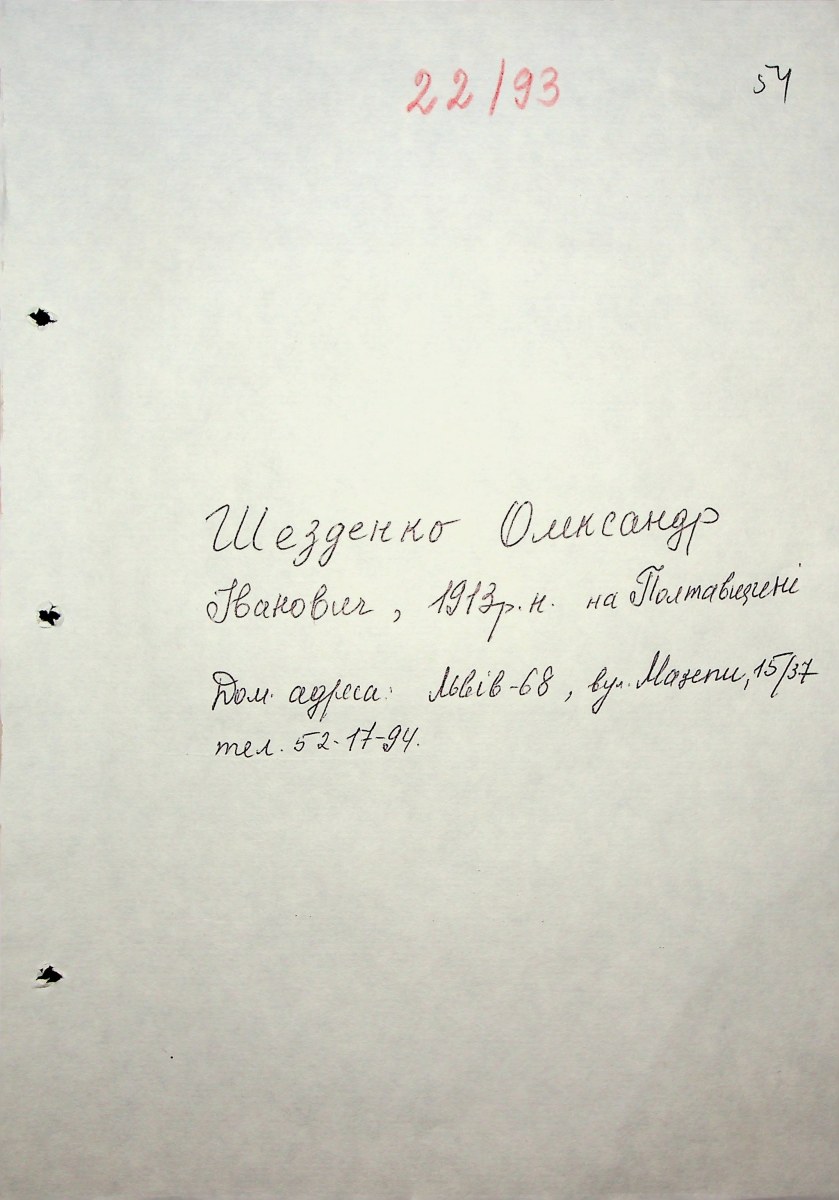 22/93
54
Шезденко Олександр
Іванович, 1913р.н. на Полтавщені
Дом. адреса: Львів-68, вул. Мазепи, 15/37
тел. 52-17-94.